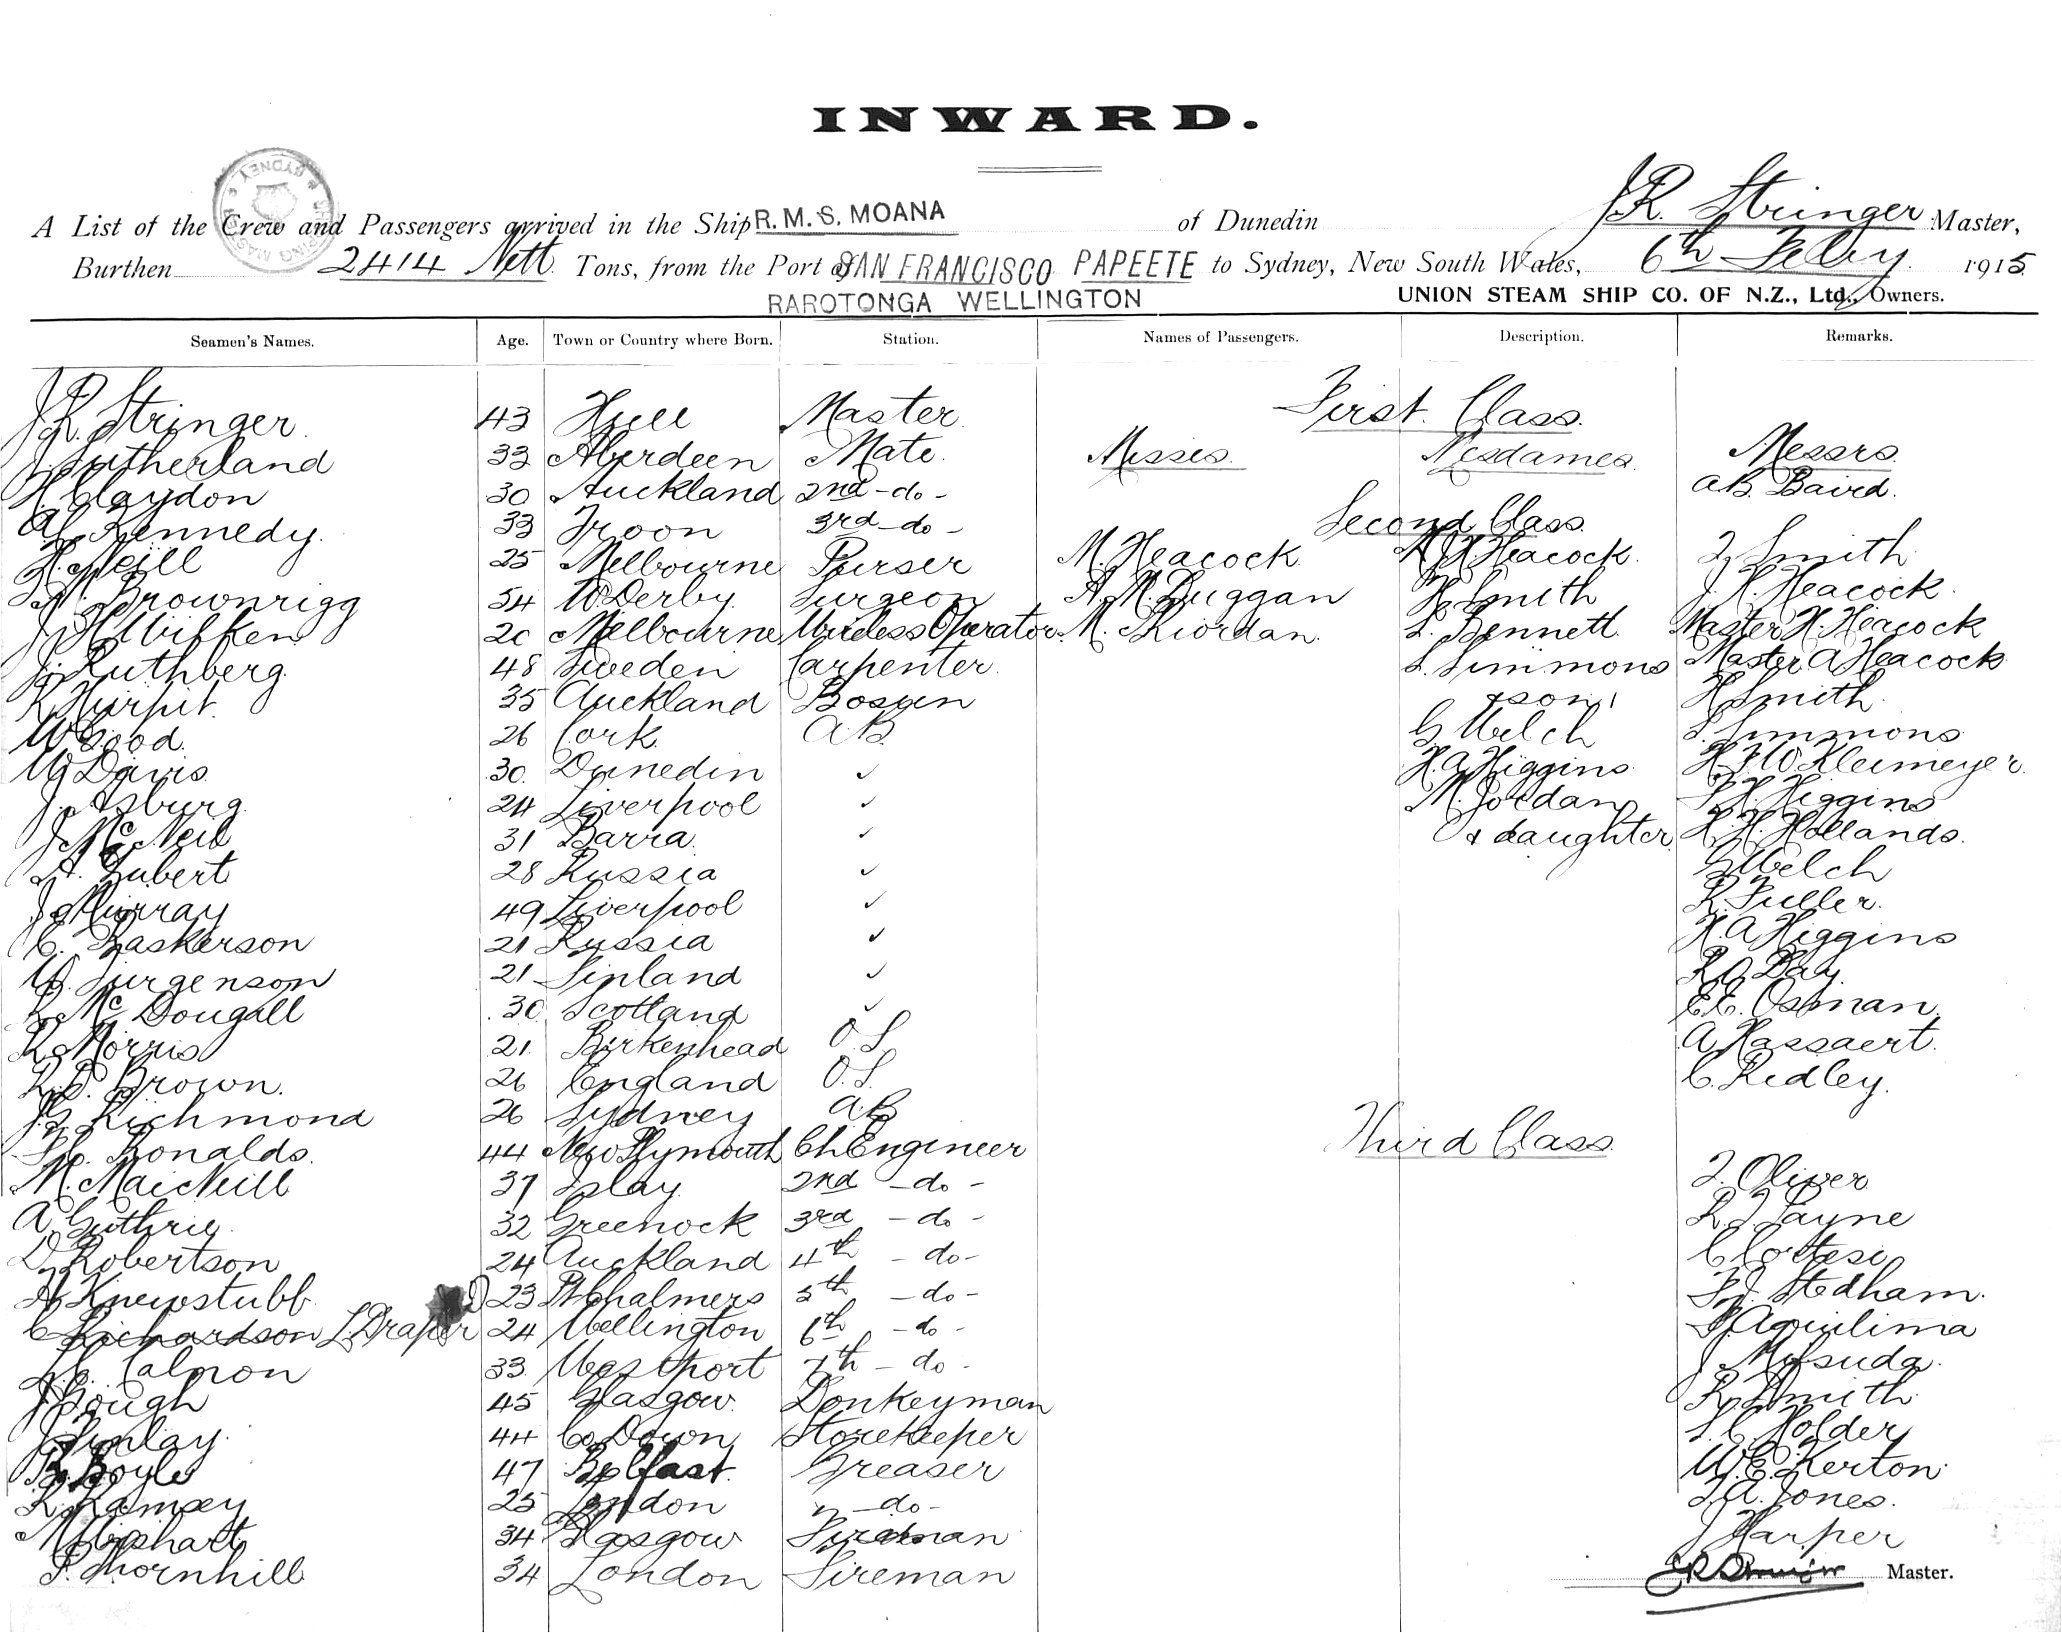 INWARD.
A List of the Crew and Passengers arrived in the Ship R.M.S. MOANA of Dunedin J.R. Stringer Master,
Burthen 2414 Nett Tons, from the Port of SAN FRANCISCO PAPEETE to Sydney, New South Wales, 6th Feby 1915
RAROTONGA WELLINGTON UNION STEAM SHIP CO. OF N.Z., Ltd., Owners.
Seamen's Names. Age. Town or Country where Born. Station. Names of Passengers. Description. Remarks.
J.R. Stringer 43 Hull Master
J Sutherland 33 Aberdeen Mate
H Claydon 30 Auckland 2nd - do -
A.C. Kennedy 33 Troon 3rd - do -
H. Neill 25 Melbourne Purser
Brownrigg 54 W. Derby Surgeon
20 Melbourne Wireless Operator
J. Ruthberg 48 Sweden Carpenter
35 Auckland Bosun
W Good 26 Cork A.B.
W Davis 30 Dunedin ✓
J. Asburg 24 Liverpool ✓
J McNeil 31 Barra ✓
A. Gubert 28 Russia ✓
J Murray 49 Liverpool ✓
C. Baskerson 21 Russia ✓
W. Jurgenson 21 Finland ✓
McDougall 30 Scotland ✓
R Morris 21 Birkenhead O.S
Brown. 26 England O.S.
Richmond 26 Sydney A.B
Ronalds. 44 New Plymouth Ch Engineer
M. MacNeill 37 Islay 2nd - do -
A Guthrie 32 Greenock 3rd - do -
D Robertson 24 Auckland 4th - do -
A Knewstubb 23 Pt Chalmers 5th - do -
C Richardson L. Draper 24 Wellington 6th - do -
Calnon 33 Westport 7th - do -
J Gough 45 Glasgow Donkeyman
J Finlay 44 Co Down Storekeeper
B. Boyle 47 Belfast Greaser
R Ramsey 25 London - do -
Wishart 34 Glasgow Fireman
Thornhill 34 London Fireman
First Class.
Misses. Mesdames. Messrs.
A.B. Baird.
Second Class
M. Heacock Heacock. Smith
A. M. Duggan H. Smith J. H. Heacock
M. Riordan. L. Bennett Master H. Heacock
S. Simmons Master A Heacock
& son H Smith
G Welch S. Simmons
H.A. Higgins H F W Kleimeyer
M. Jordan Higgins
& daughter H. Hollands.
G Welch
R. Fuller.
H. A Higgins
Day
Osman.
A Hassaert.
C. Ridley.
Third Class.
Oliver
Payne
C Cortesi
F.J. Stedham.
Aquilima
J Matsuda.
R. Smith
S. C Holder
W.E. Kerton
Jones.
J Harper
Master.